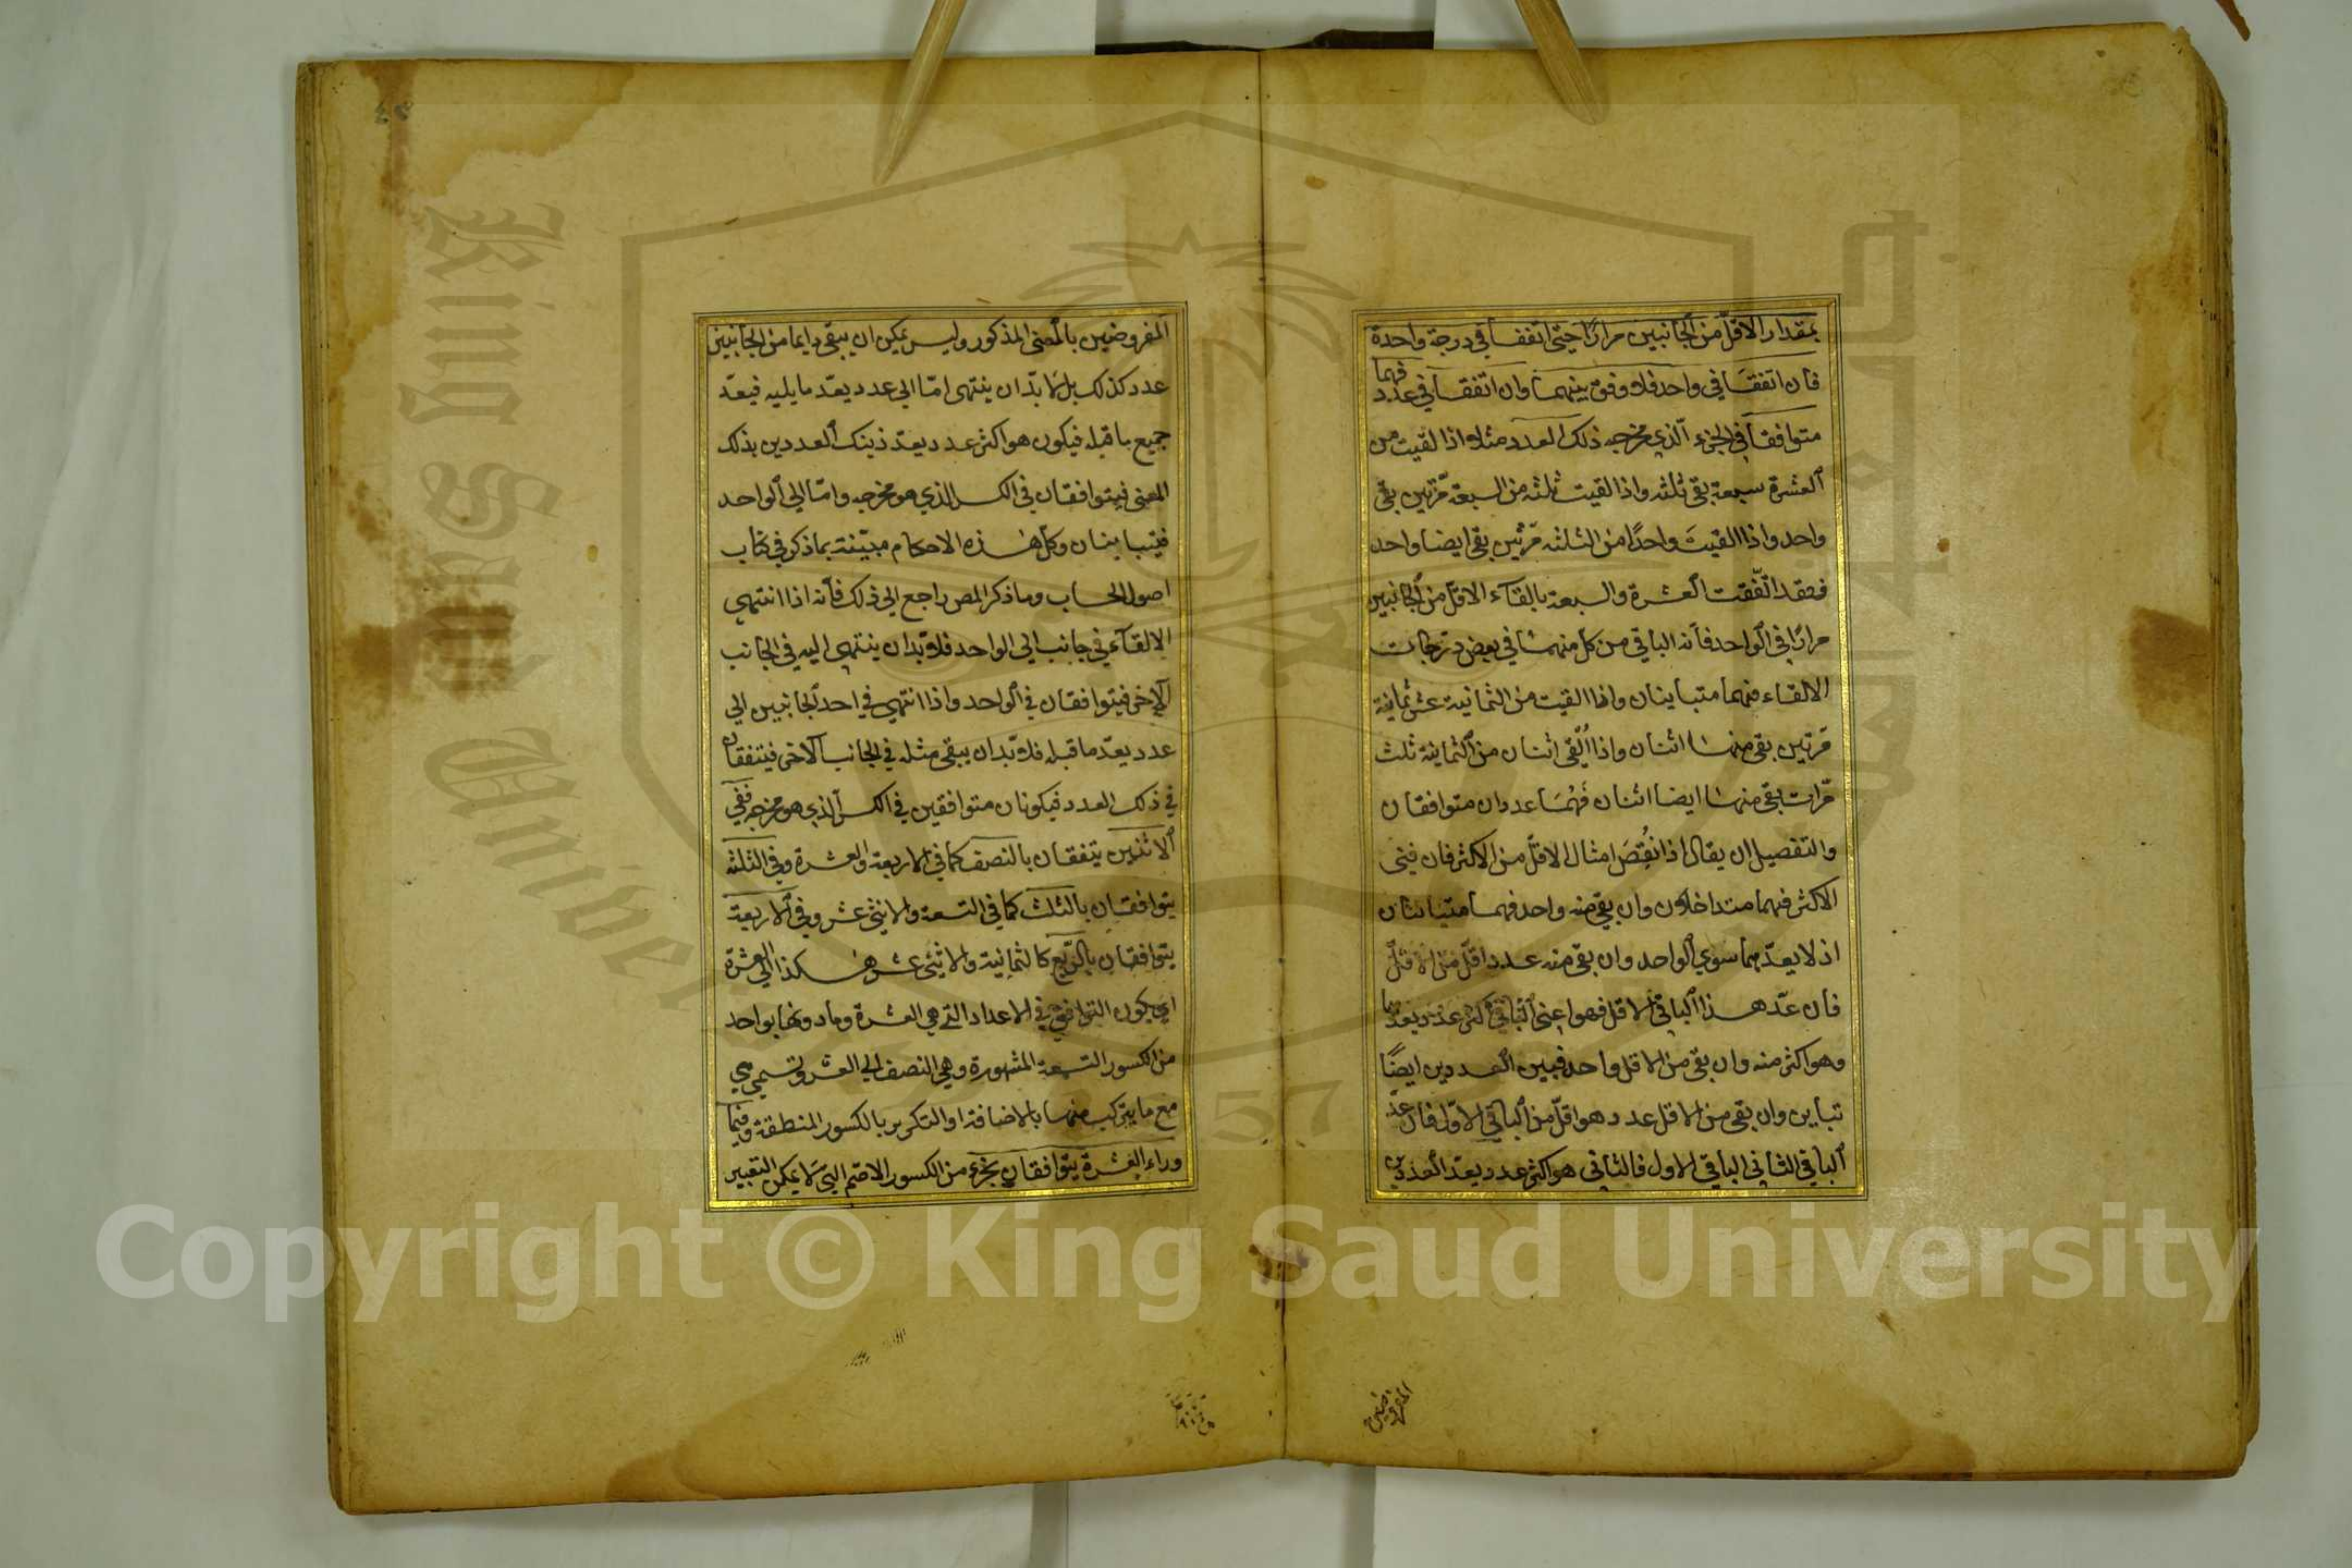 بمقدار الاقل من الجانبين مرارا حتى اتفقا في درجة واحدة
فان اتفقا في واحد فلا وفق بينهما وان اتفقا في عدد فهما
متوافقا في الجزء الذي مخرجه ذلك العدد مثلا اذا لقيت من
العشرة سبعة بقى ثلثه واذا القيت ثلثه من السبعة مرتين بقى
واحد واذا القيت واحدا من الثلثه مرتين بقى ايضا واحد
فقد اتفقت العشرة والسبعة بالقاء الاقل من الجانبين
مرارا في الواحد فانه الباقي من كل منهما في بعض درجات
الالقاء فهما متباينان واذا القيت من الثمانية عشر ثمانية
مرتين بقى منها اثنان واذا القى اثنان من الثمانية ثلث
مرات بقى منها ايضا اثنان فهما عددان متوافقان
والتفصيل ان يقال اذا نقص امثال الاقل من الاكثر فان فنى
الاكثر فهما متداخلان وان بقى منه واحد فهما متباينان
اذ لا يعدهما سوي الواحد وان بقى منه عدد اقل من الاقل
فان عد هذا الباقي الاقل فهو اعني الباقي اكثر عدد يعدهما
وهو اكثر منه وان بقى من الاقل واحد فبين العددين ايضا
تباين وان بقى من الاقل عدد هو اقل من الباقي الاول فان عد
الباقي الثاني الباقي الاول فالثاني هو اكثر عدد يعد العددين
المفروضين
المفروضين بالمعنى المذكور وليس يمكن ان يبقى دايما من الجانبين
عدد كذلك بل لا بد ان ينتهى اما الى عدد يعد ما يليه فيعد
جميع ما قبله فيكون هو اكثر عدد يعد ذينك العددين بذلك
المعنى فيتوافقان في الكسر الذي هو مخرجه واما الى الواحد
فيتباينان وكل هذه الاحكام مبينة بما ذكر في كتاب
اصول الحساب وما ذكر المص راجع الى ذلك فانه اذا انتهى
الالقاء في جانب الى الواحد فلا بد ان ينتهى اليه في الجانب
الاخر فيتوافقان في الواحد واذا انتهى في احد الجانبين الى
عدد يعد ما قبله فلا بد ان يبقى مثله في الجانب الاخر فيتفقان
في ذلك العدد فيكونان متوافقين في الكسر الذي هو مخرجه ففي
الاثنين يتفقان بالنصف كما في الاربعة والعشرة وفي الثلثه
يتوافقان بالثلث كما في التسعة والاثنى عشر وفي الاربعة
يتوافقان بالربع كالثمانية والاثنى عشر هكذا الى العشرة
اي يكون التوافق في الاعداد التي هي العشرة وما دونها بواحد
من الكسور التسعة المشهورة وهي النصف الى العشر وتسمى هي
مع ما يتركب منها بالاضافة او التكرير بالكسور المنطقة وفيما
وراء العشرة يتوافقان بجزء من الكسور الاصم التي لا يمكن التعبير
King Saud University
57
Copyright © King Saud University